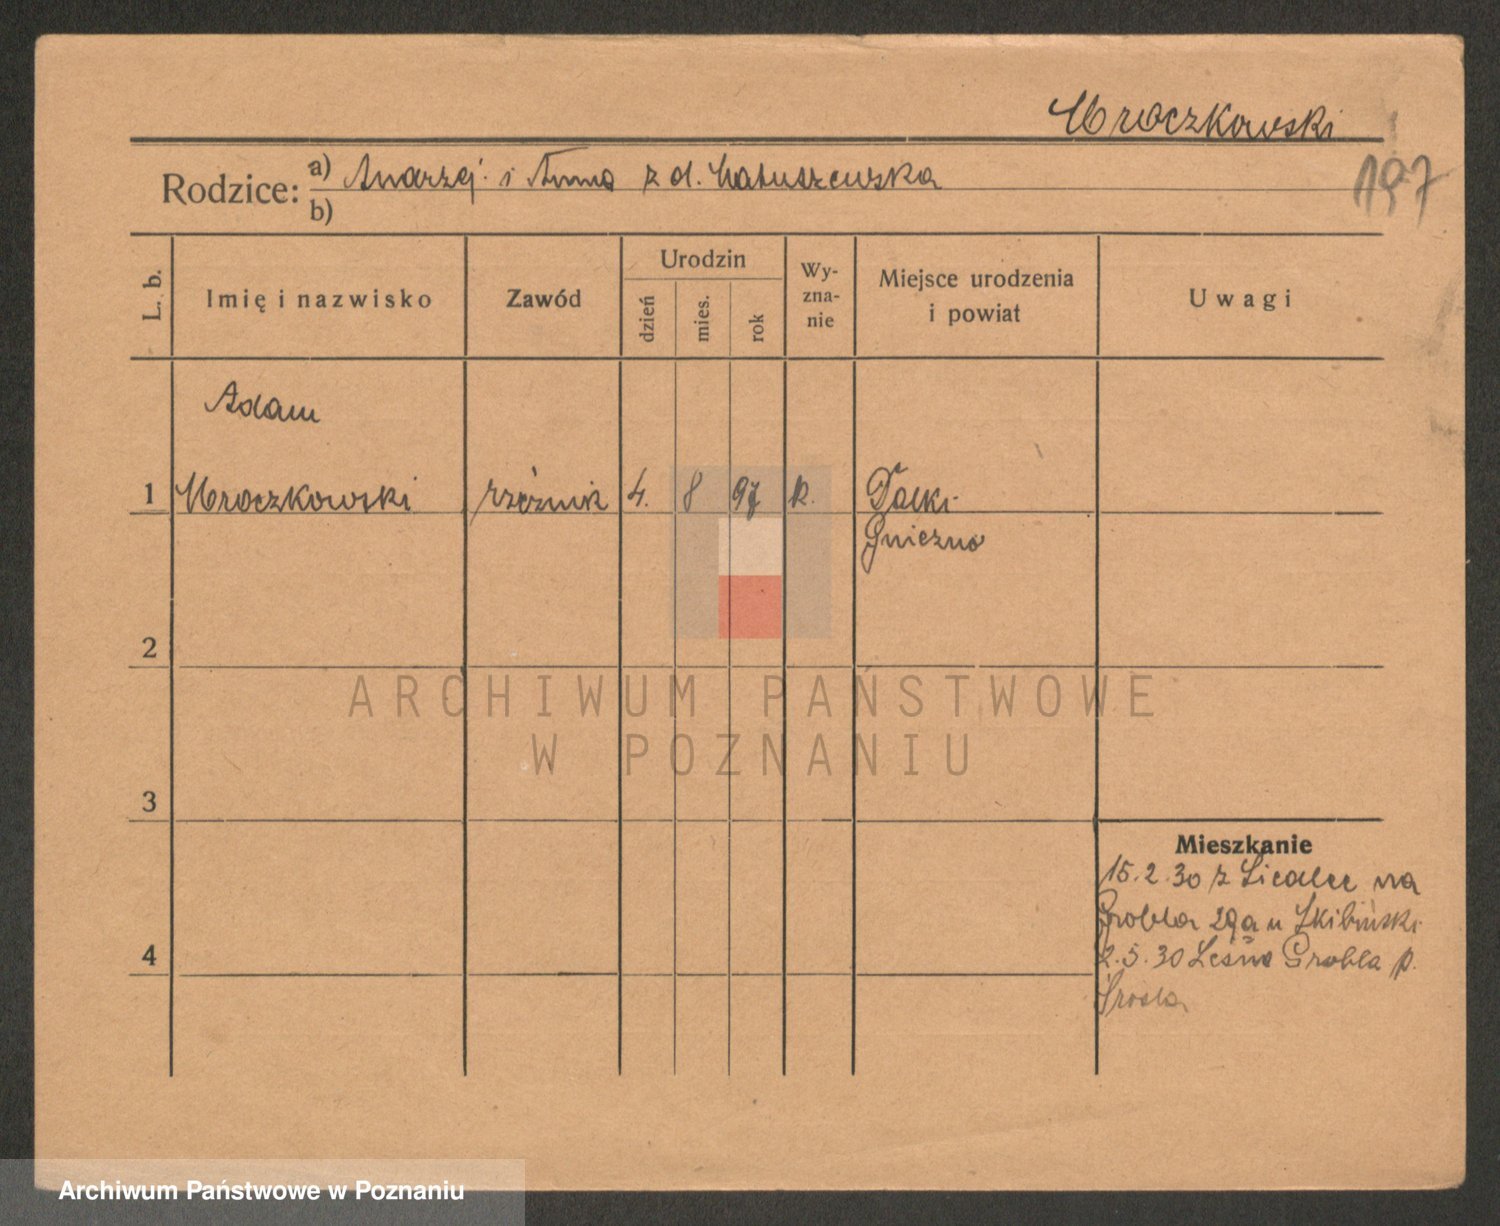 Mroczkowski
197
Rodzice: a) Andrzej i Anna z d. Matuszewska
b)
L. b. Imię i nazwisko Zawód Urodzin dzień mies. rok Wy-zna-nie Miejsce urodzenia i powiat Uwagi
Adam
1 Mroczkowski rzeźnik 4. 8 97 k.
Gniezno
2
3
4
Mieszkanie
15.2.30 z na
Grobla 29a u Skibiński
2.5.30 Leśna Grobla p.
ARCHIWUM PAŃSTWOWE
W POZNANIU
Archiwum Państwowe w Poznaniu